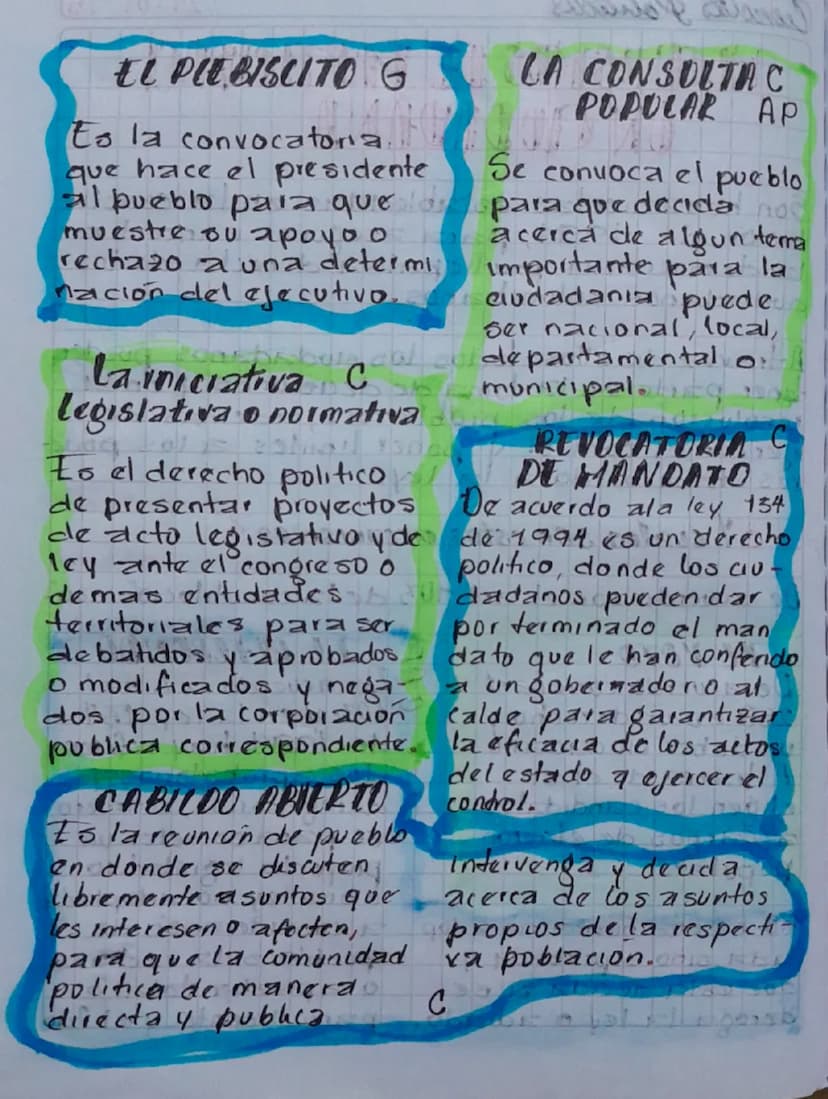 EL PLEBISCITO G
Es la convocatoria
que hace el presidente
al pueblo para que
muestre su apoyo o
rechazo a una determi
nación del ejecutivo.
LA CONSULTA C
POPULAR AP
Se convoca el pueblo
para que decida
acerca de algun tema
importante para la
ciudadania puede
ser nacional, local,
departamental o
municipal.
La iniciativa C
legislativa o normativa
Es el derecho politico
de presentar proyectos
de acto legislativo y de
ley ante el congreso o
demas entidades
territoriales para ser
debatidos y aprobados
o modificados y nega-
dos por la corporación
publica correspondiente.
REVOCATORIA C
DE MANDATO
De acuerdo ala ley 134
de 1994 es un derecho
politico, donde los ciu-
dadanos pueden dar
por terminado el man
dato que le han conferido
a un gobernador o al
calde para garantizar
la eficacia de los actos
del estado y ejercer el
control.
CABILDO ABIERTO
Es la reunion de pueblo
en donde se discuten
libremente asuntos que
les interesen o afecten,
para que la comunidad
politica de manera
directa y publica C
intervenga y decida
acerca de los asuntos
propios de la respecti-
va poblacion.